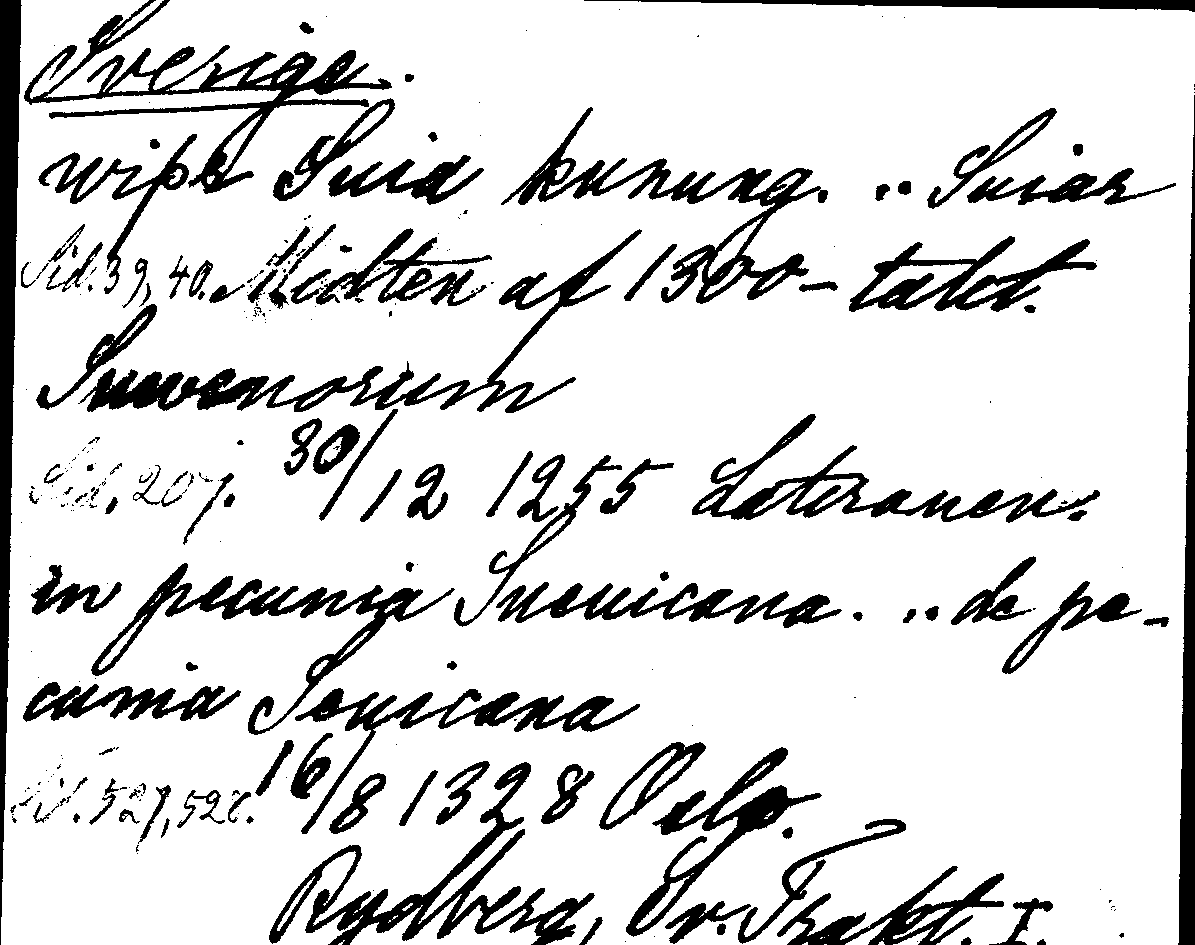 Sverige.
wiþs Suia kunung. .. Suiar
Sid. 39, 40. Midten af 1300-talet.
Suevenorum
Sid. 207. 30/12 1255 Lateranen:
in pecunia Sueuicana. .. de pe-
cunia Seuicana
Sid. 527, 528. 16/8 1328 Oslo.
Rydberg, Sv. Trakt. I.